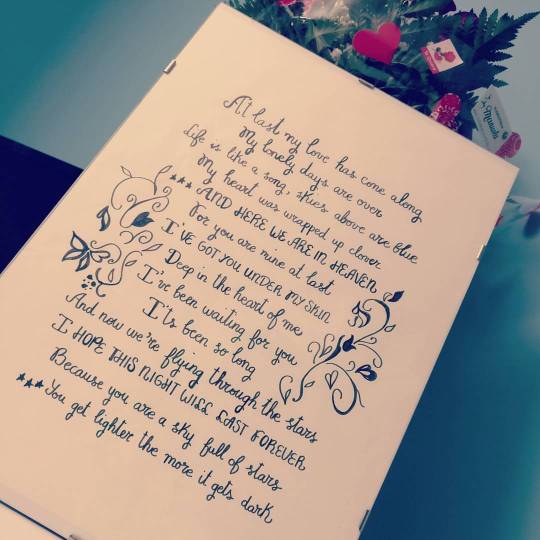 At last my love has come along
My lonely days are over
Life is like a song, skies above are blue
My heart was wrapped up clover
★★★ AND HERE WE ARE IN HEAVEN
For you are mine at last
I'VE GOT YOU UNDER MY SKIN
Deep in the heart of me
I've been waiting for you
It's been so long
And now we're flying through the stars
I HOPE THIS NIGHT WILL LAST FOREVER
Because you are a sky full of stars
★★★ You get lighter the more it gets dark